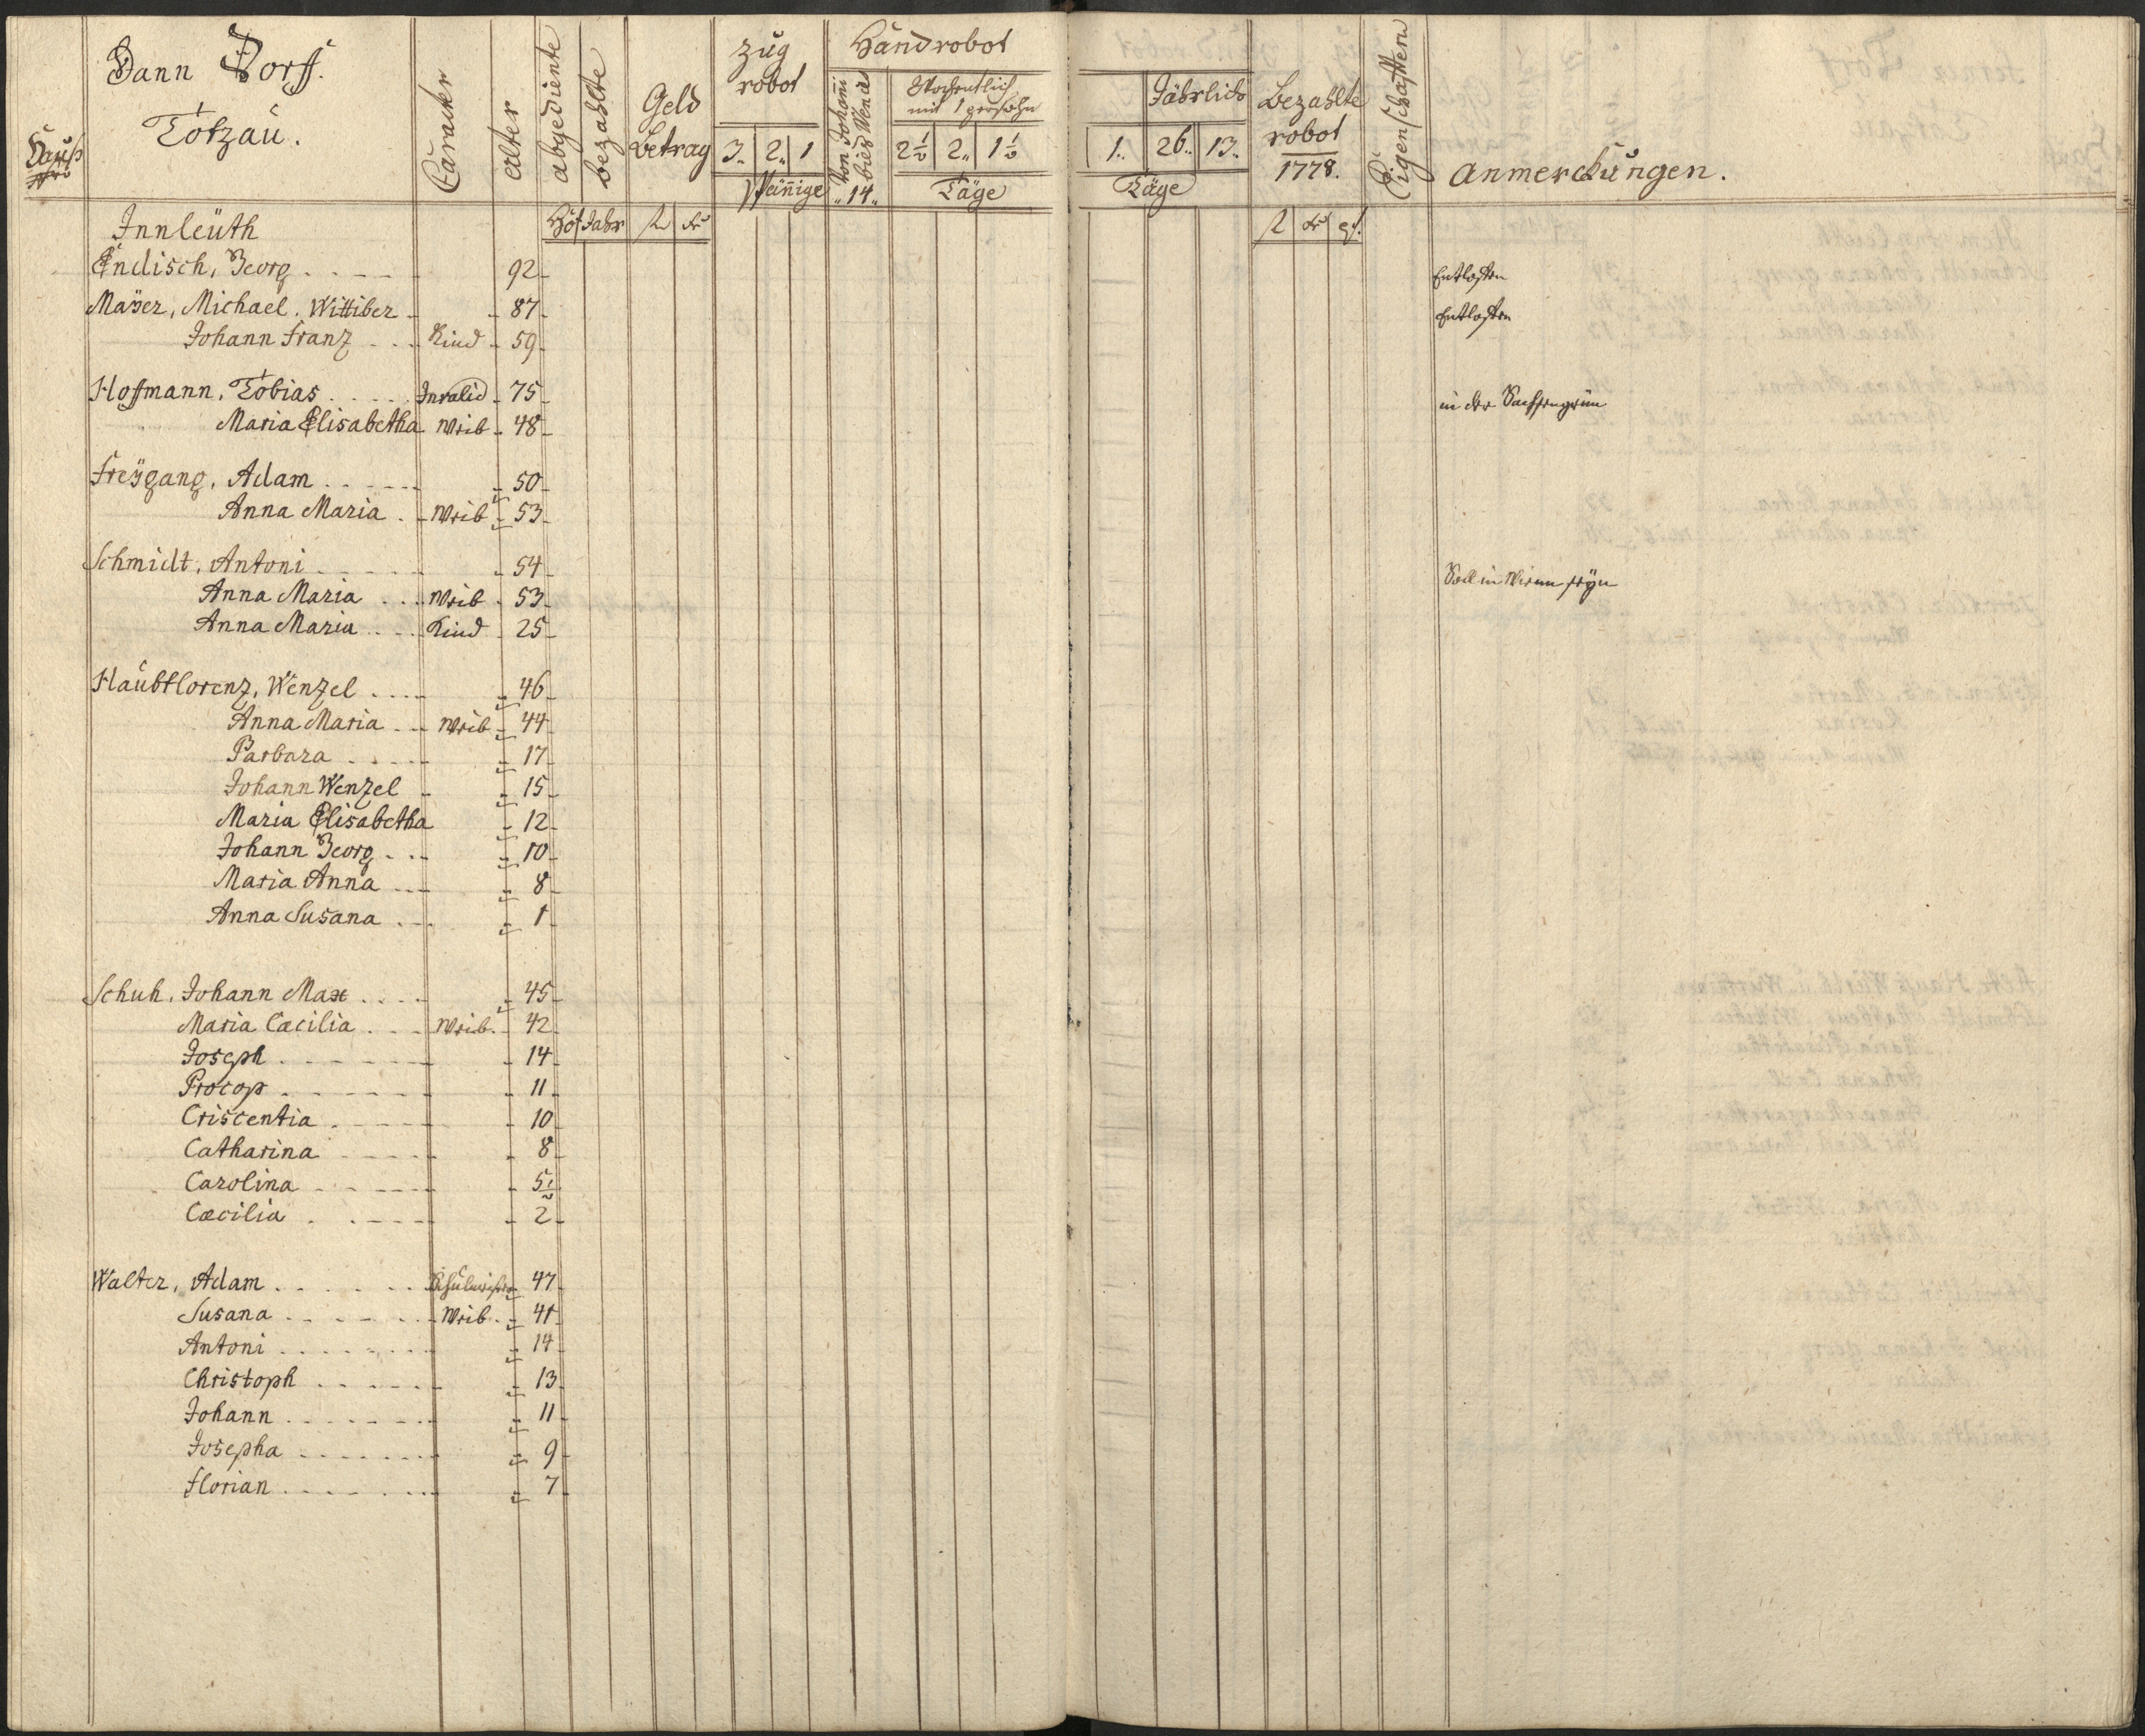 Dann Dorff.
Totzau.
Hauß
Nro
Caracter
alter
abgediente
bezahlte
Geld
Betrag
Zug
robot
3. 2. 1
Handrobot
Von Johoñi
bies Wence
14
Wochentlich
mit 1 persohn
2½ 2. 1½
Täge
Jährlich
1. 26. 13.
Täge
Bezahlte
robot
1778.
Eigenschafften
Anmerckungen.
Hof Jahr f kr
f kr
Innleüth
Endisch, Georg 92 Entlasten
Maÿer, Michael. Wittiber 87 Entlasten
Johann Franz Kind 59
Hoffmann, Tobias Invalid 75 in der Sachsengrün
Maria Elisabetha Weib 48
Freÿgang, Adam 50
Anna Maria Weib 53
Schmidt, Antoni 54 Soll in Wienn seÿn
Anna Maria Weib 53
Anna Maria Kind 25
Haubtlorenz, Wenzel 46
Anna Maria Weib 44
Parbara 17
Johann Wenzel 15
Maria Elisabetha 12
Johann Georg 10
Maria Anna 8
Anna Susana 1
Schuh, Johann Max 45
Maria Cæcilia Weib. 42
Joseph 14
Procop 11
Criscentia 10
Catharina 8
Carolina 5½
Cæcilia 2
Walter, Adam Schulmeister 47
Susana Weib 41
Antoni 14
Christoph 13
Johann 11
Josepha 9
Florian 7